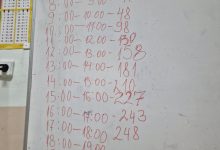 8:00-9:00
9:00-10:00-48
10:00-11:00-98
11:00-12:00-130
12:00-13:00-158
13:00-14:00-181
14:00-15:00-210
15:00-16:00-227
16:00-17:00-243
17:00-18:00-248
18:00-19:00